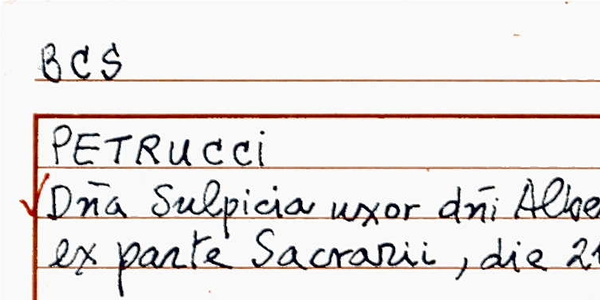 BCS
PETRUCCI
Dn̄a Sulpicia uxor dn̄i
ex parte Sacrarii, die